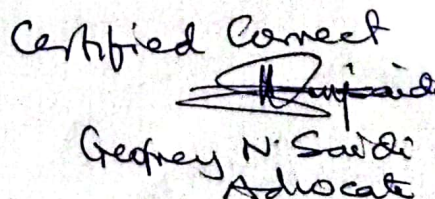 Certified Correct
Geofrey N. Saidi
Advocate